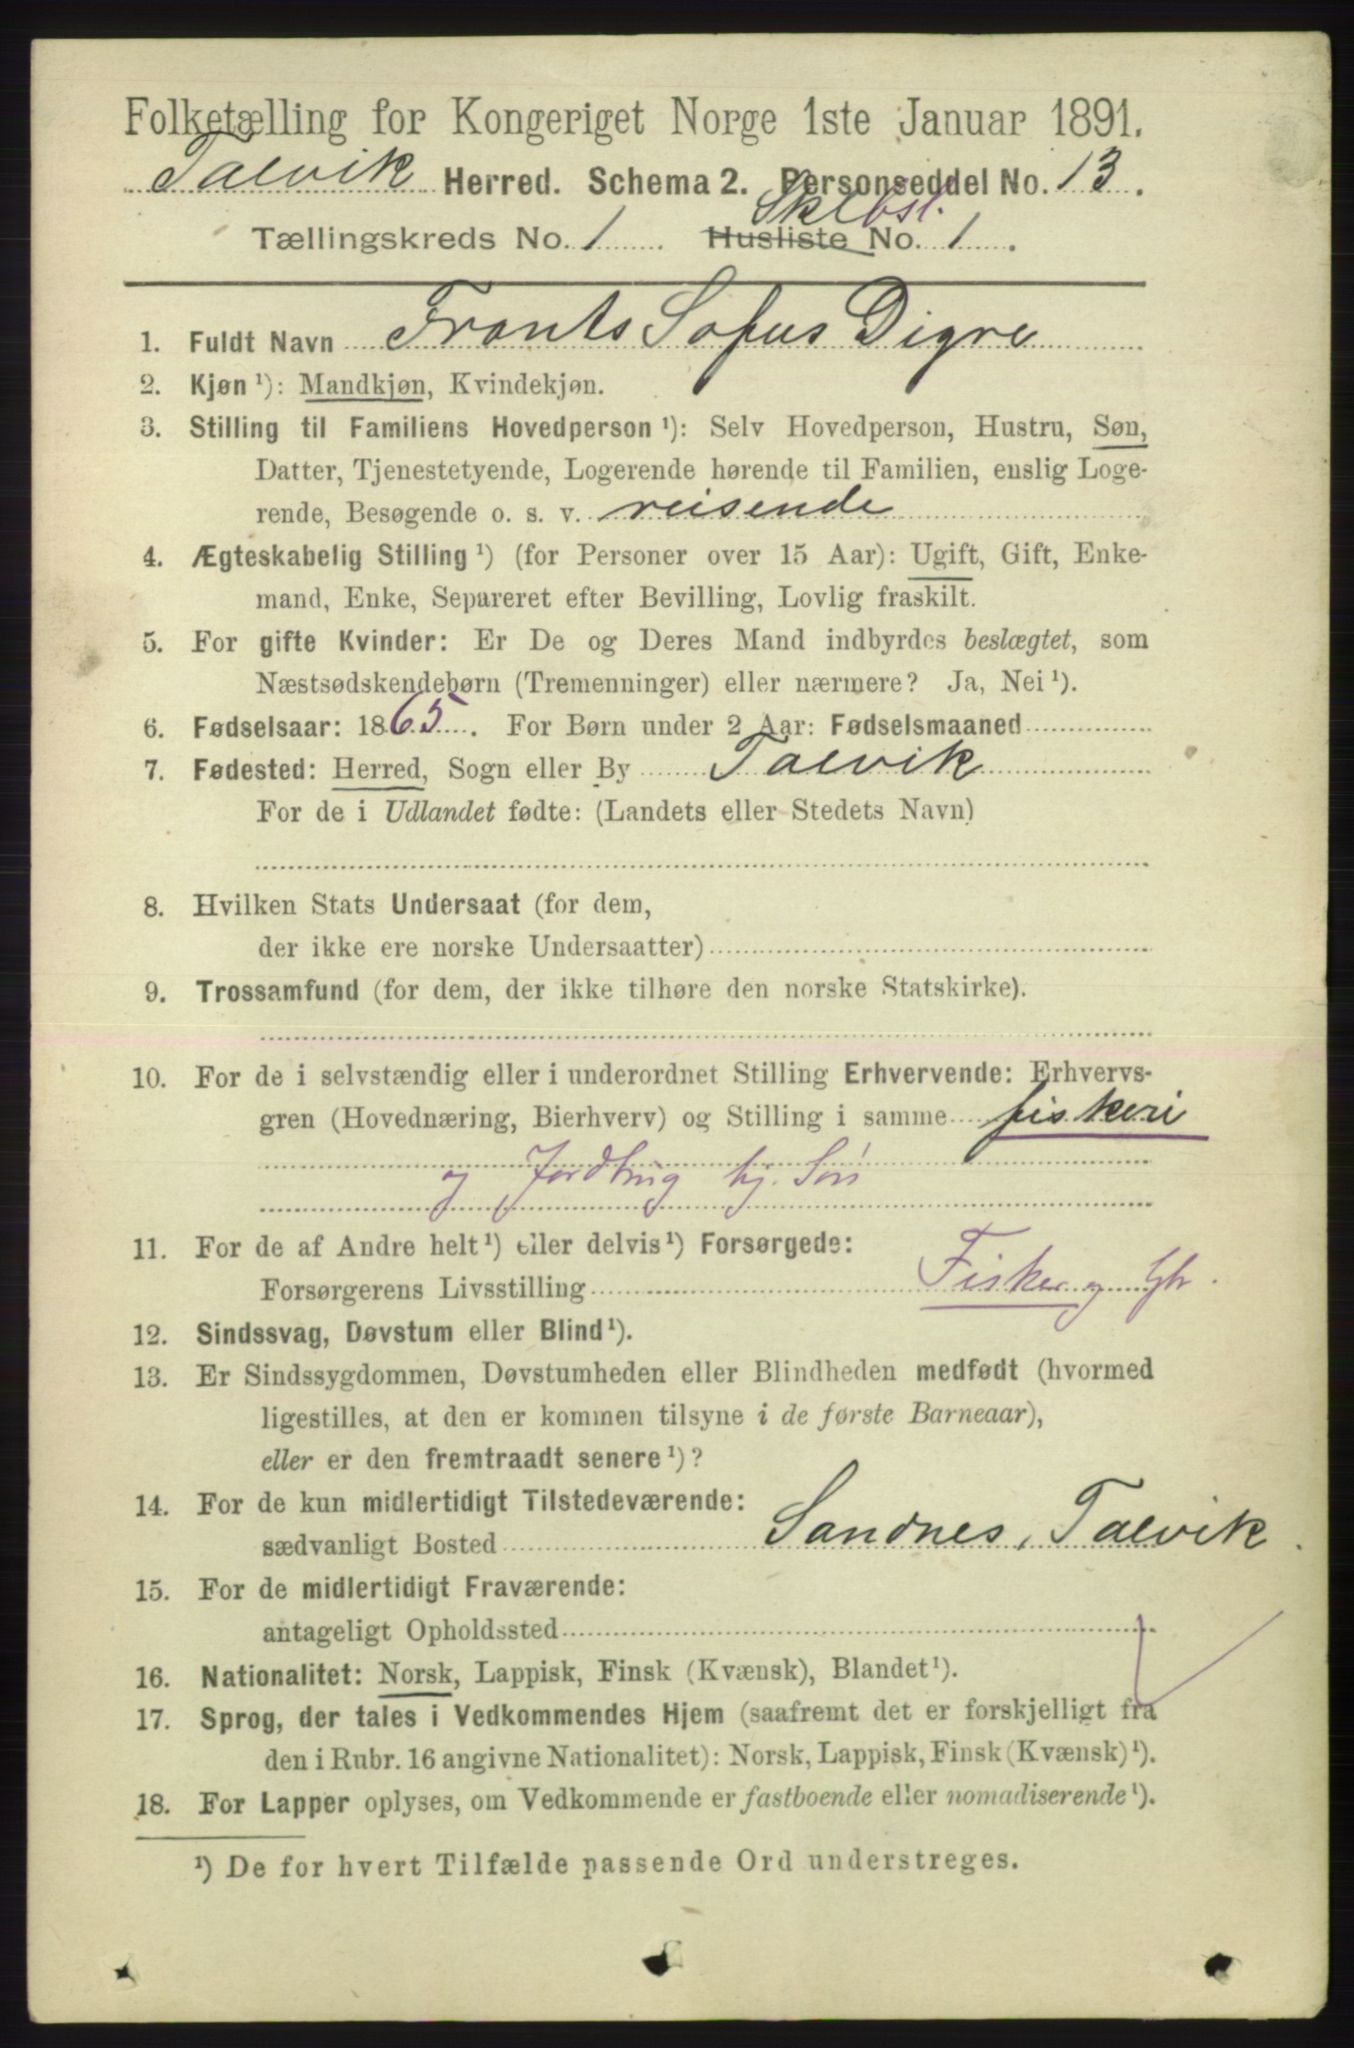 Folketælling for Kongeriget Norge 1ste Januar 1891.
Talvik Herred. Schema 2. Personseddel No. 13.
Skibsl.
Tællingskreds No. 1 Husliste No. 1.
1. Fuldt Navn Frants Sofus Digre
2. Kjøn ¹): Mandkjøn, Kvindekjøn.
3. Stilling til Familiens Hovedperson ¹): Selv Hovedperson, Hustru, Søn,
Datter, Tjenestetyende, Logerende hørende til Familien, enslig Loge-
rende, Besøgende o. s. v. reisende
4. Ægteskabelig Stilling ¹) (for Personer over 15 Aar): Ugift, Gift, Enke-
mand, Enke, Separeret efter Bevilling, Lovlig fraskilt.
5. For gifte Kvinder: Er De og Deres Mand indbyrdes beslægtet, som
Næstsødskendebørn (Tremenninger) eller nærmere? Ja, Nei ¹).
6. Fødselsaar: 1865. For Børn under 2 Aar: Fødselsmaaned
7. Fødested: Herred, Sogn eller By Talvik
For de i Udlandet fødte: (Landets eller Stedets Navn)
8. Hvilken Stats Undersaat (for dem,
der ikke ere norske Undersaatter)
9. Trossamfund (for dem, der ikke tilhøre den norske Statskirke).
10. For de i selvstændig eller i underordnet Stilling Erhvervende: Erhvervs-
gren (Hovednæring, Bierhverv) og Stilling i samme fiskeri
og Jordbrug hj. Søn
11. For de af Andre helt ¹) eller delvis ¹) Forsørgede:
Forsørgerens Livsstilling Fisker og Gbr.
12. Sindssvag, Døvstum eller Blind ¹).
13. Er Sindssygdommen, Døvstumheden eller Blindheden medfødt (hvormed
ligestilles, at den er kommen tilsyne i de første Barneaar),
eller er den fremtraadt senere ¹)?
14. For de kun midlertidigt Tilstedeværende:
sædvanligt Bosted Sandnes, Talvik.
15. For de midlertidigt Fraværende:
antageligt Opholdssted
16. Nationalitet: Norsk, Lappisk, Finsk (Kvænsk), Blandet ¹).
17. Sprog, der tales i Vedkommendes Hjem (saafremt det er forskjelligt fra
den i Rubr. 16 angivne Nationalitet): Norsk, Lappisk, Finsk (Kvænsk) ¹).
18. For Lapper oplyses, om Vedkommende er fastboende eller nomadiserende ¹).
¹) De for hvert Tilfælde passende Ord understreges.